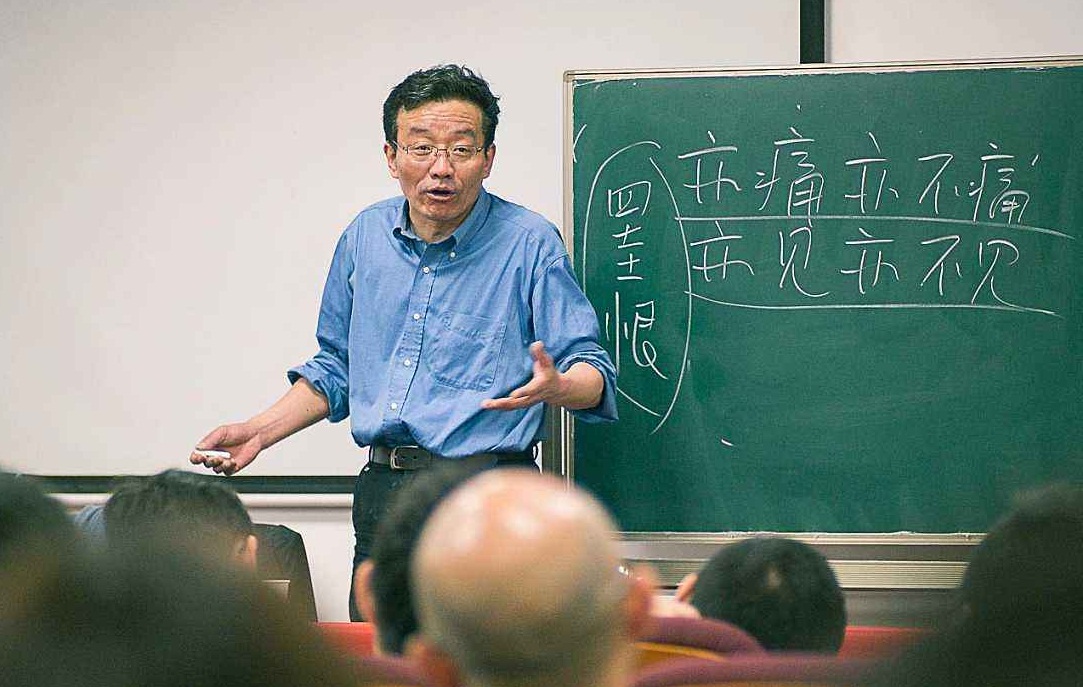 (罣恨)
亦痛亦不痛
亦见亦不见